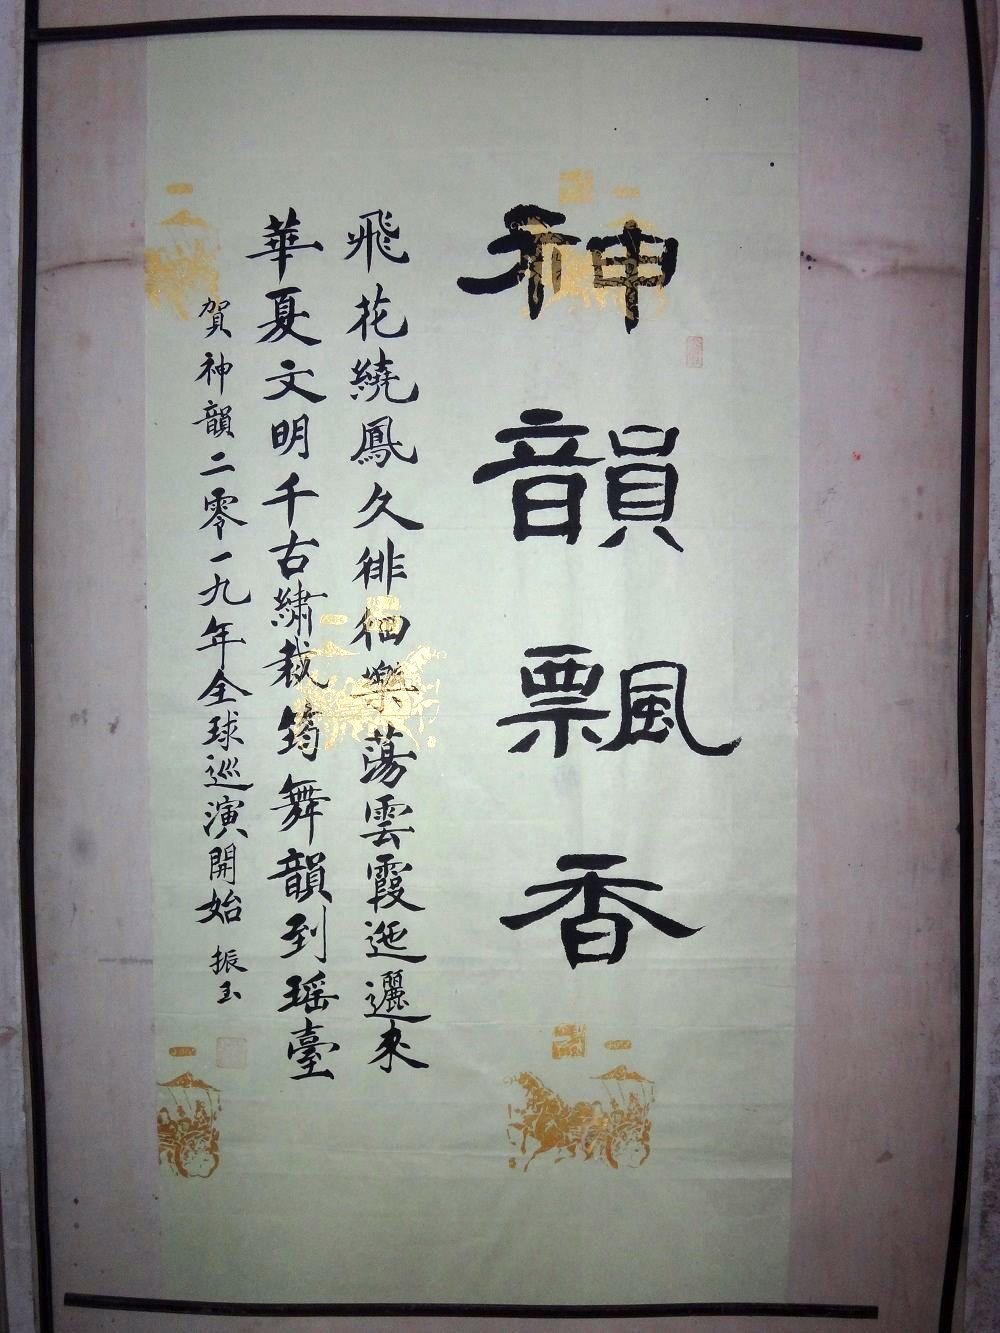 神韻飄香
飛花繞鳳久徘徊樂蕩雲霞迤邐來
華夏文明千古繡裁筠舞韻到瑤臺
賀神韻二零一九年全球巡演開始 振玉